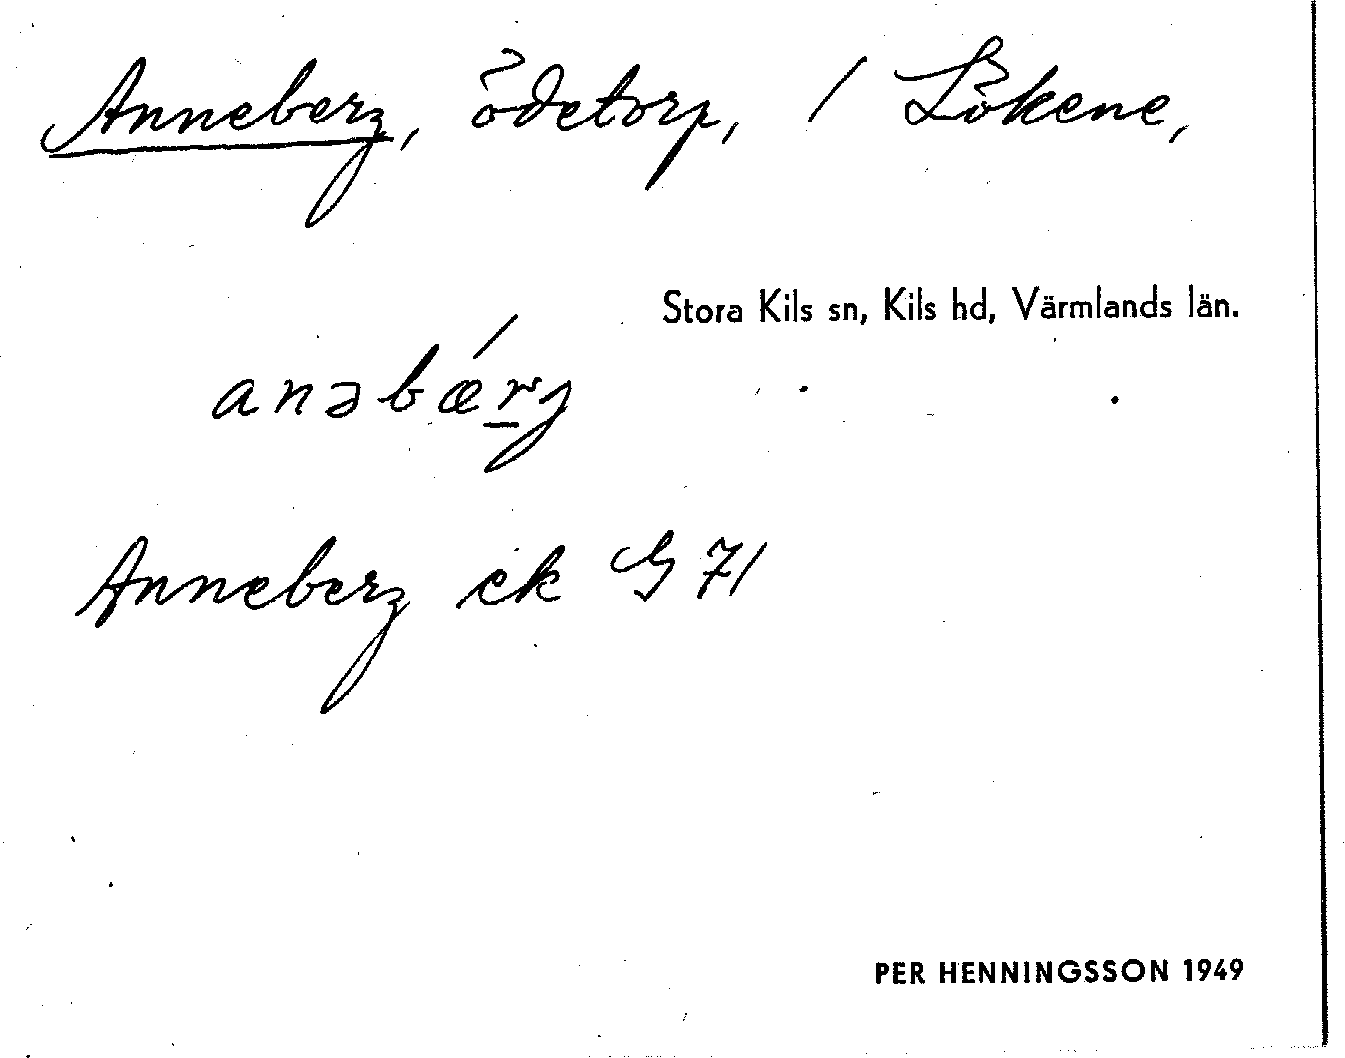 Anneberg, ödetorp, / Lökene,
Stora Kils sn, Kils hd, Värmlands län.
anəbǽr̲j
Anneberg ek G 71
PER HENNINGSSON 1949